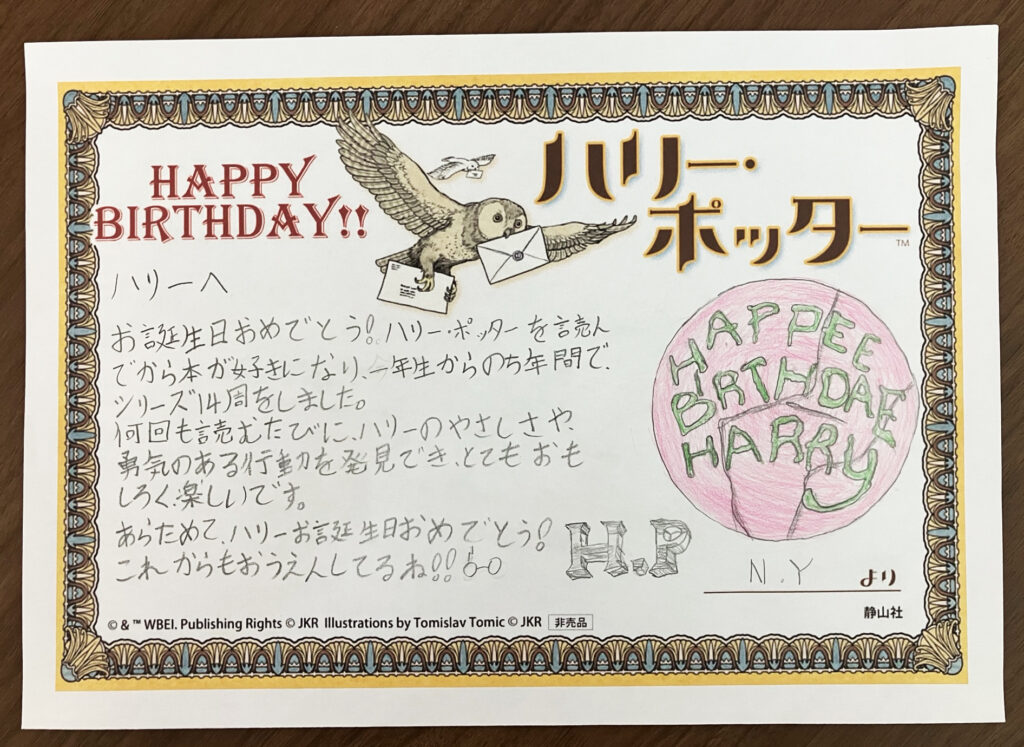 HAPPY
BIRTHDAY!!
ハリー・
ポッター™
ハリーへ
お誕生日おめでとう!ハリー・ポッターを読ん
でから本が好きになり、一年生からの5年間で、
シリーズ14周をしました。
何回も読むたびに、ハリーのやさしさや、
勇気のある行動を発見でき、とてもおも
しろく、楽しいです。
あらためて、ハリーお誕生日おめでとう!
これからもおうえんしてるね!!
H.P
HAPPEE
BIRTHDAE
HARRY
N.Y より
静山社
© & ™ WBEI. Publishing Rights © JKR Illustrations by Tomislav Tomic © JKR 非売品